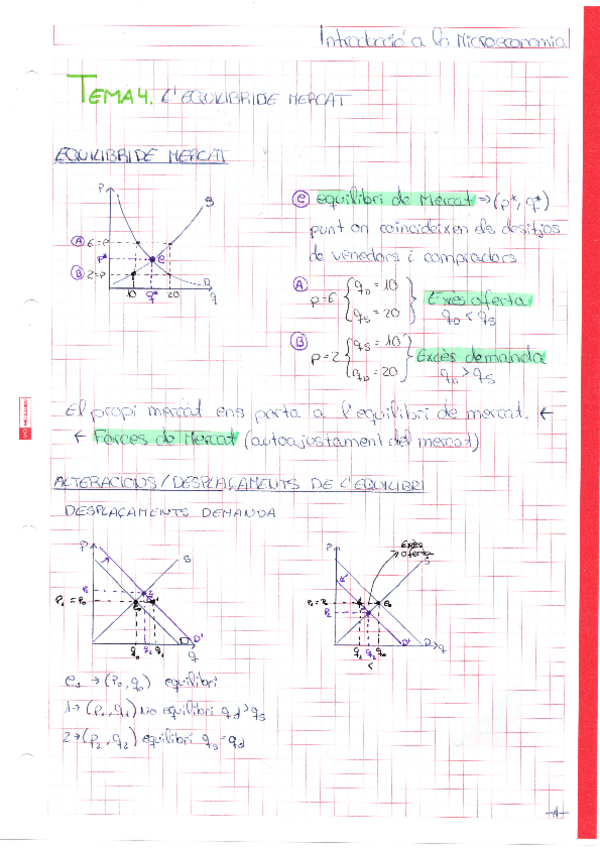 Introducció a la Microeconomia
TEMA 4. L'EQUILIBRI DE MERCAT
EQUILIBRI DE MERCAT
P
S
A 6=P
P*
e
B 2=P
D
10 q* 20 q
e equilibri de Mercat ⇒ (p*, q*)
punt on coincideixen els desitjos
de venedors i compradors
A p=6 { qD = 10
qS = 20 } Excés oferta
qD < qS
B p=2 { qS = 10
qD = 20 } Excés demanda
qD > qS
El propi mercat ens porta a l'equilibri de mercat. ←
← Forces de Mercat (autoajustament del mercat)
ALTERACIONS/DESPLAÇAMENTS DE L'EQUILIBRI
DESPLAÇAMENTS DEMANDA
P
S
P2
P1 = P0
D D'
q0 q2 q1 q
Excés
oferta
S
P2
D' D q
q1 q2 q0
<
e0 → (P0, q0) equilibri
1 → (P1, q1) No equilibri qd > qs
2 → (P2, q2) equilibri qs = qd